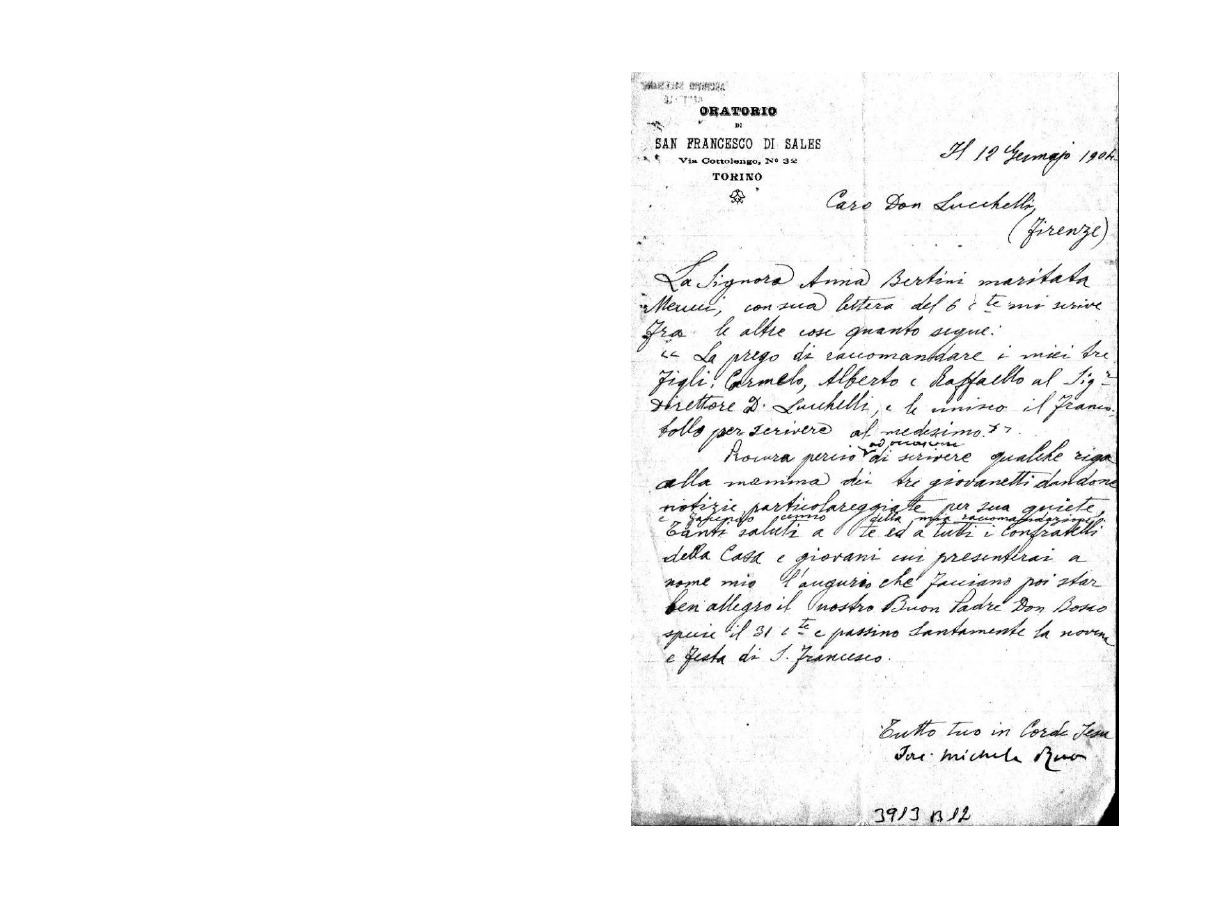 ORATORIO
DI
SAN FRANCESCO DI SALES
Via Cottolengo, Nº 32
TORINO
Il 12 Gennajo 1904
Caro Don Lucchelli,
(Firenze)
La Signora Anna Bertini maritata
Meucci, con sua lettera del 6 cte mi scrive
fra le altre cose quanto segue:
"La prego di raccomandare i miei tre
figli: Carmelo, Alberto e Raffaello al Sigr
Direttore D. Lucchelli, e le unisco il franco-
bollo per scrivere al medesimo."
Procura perciò ad occasione di scrivere qualche riga
alla mamma dei tre giovanetti dandone
notizie particolareggiate per sua quiete,
e facendo cenno della mia raccomandazione.
Tanti saluti a te ed a tutti i confratelli
della Casa e giovani cui presenterai a
nome mio l'augurio che facciano poi star
ben allegro il nostro Buon Padre Don Bosco
specie il 31 cte e passino santamente la novena
e festa di S. Francesco.
Tutto tuo in Corde Jesu
Sac. Michele Rua
3913 B 12